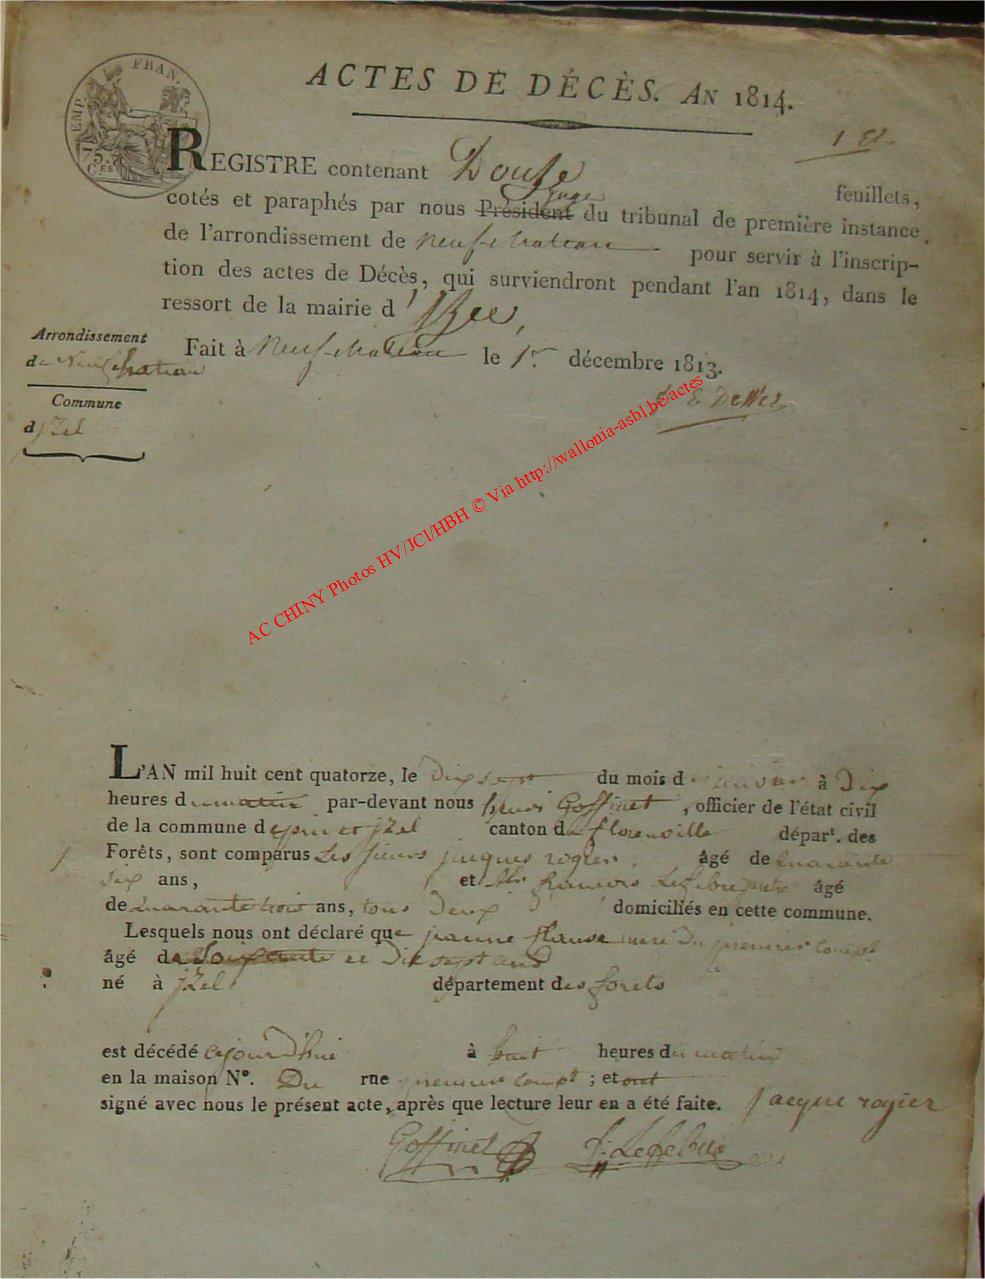 EMP. FRAN.
75.
C.ES
ACTES DE DÉCÈS. AN 1814.
1 er
REGISTRE contenant Douse feuillets,
juge
cotés et paraphés par nous Président du tribunal de première instance
de l'arrondissement de neufchateau pour servir à l'inscrip-
tion des actes de Décès, qui surviendront pendant l'an 1814, dans le
ressort de la mairie d'Izel,
Arrondissement
de Neufchateau
Commune
d'jzel
Fait à Neufchateau le 1.er décembre 1813.
AC CHINY Photos HV/JCl/HBH © Via http://wallonia-asbl.be/actes
L'AN mil huit cent quatorze, le Dix sept du mois de janvier à Dix
heures du matin par-devant nous henri Goffinet, officier de l'état civil
de la commune d'epin et jzel canton de florenville dépar.t des
Forêts, sont comparus Les sieurs jacques rogier âgé de quarante
six ans, et françois Lefebvre âgé
de quarante trois ans, tous Deux domiciliés en cette commune.
Lesquels nous ont déclaré que jeanne flause mere du premier compt
âgé de Soixante et Dix sept ans
né à jzel département des forets
est décédé cejourd'hui à huit heures du matin
en la maison N°. Du rue premier compt ; et ont
signé avec nous le présent acte, après que lecture leur en a été faite. jacque rogier
Goffinet f: Lefebvre